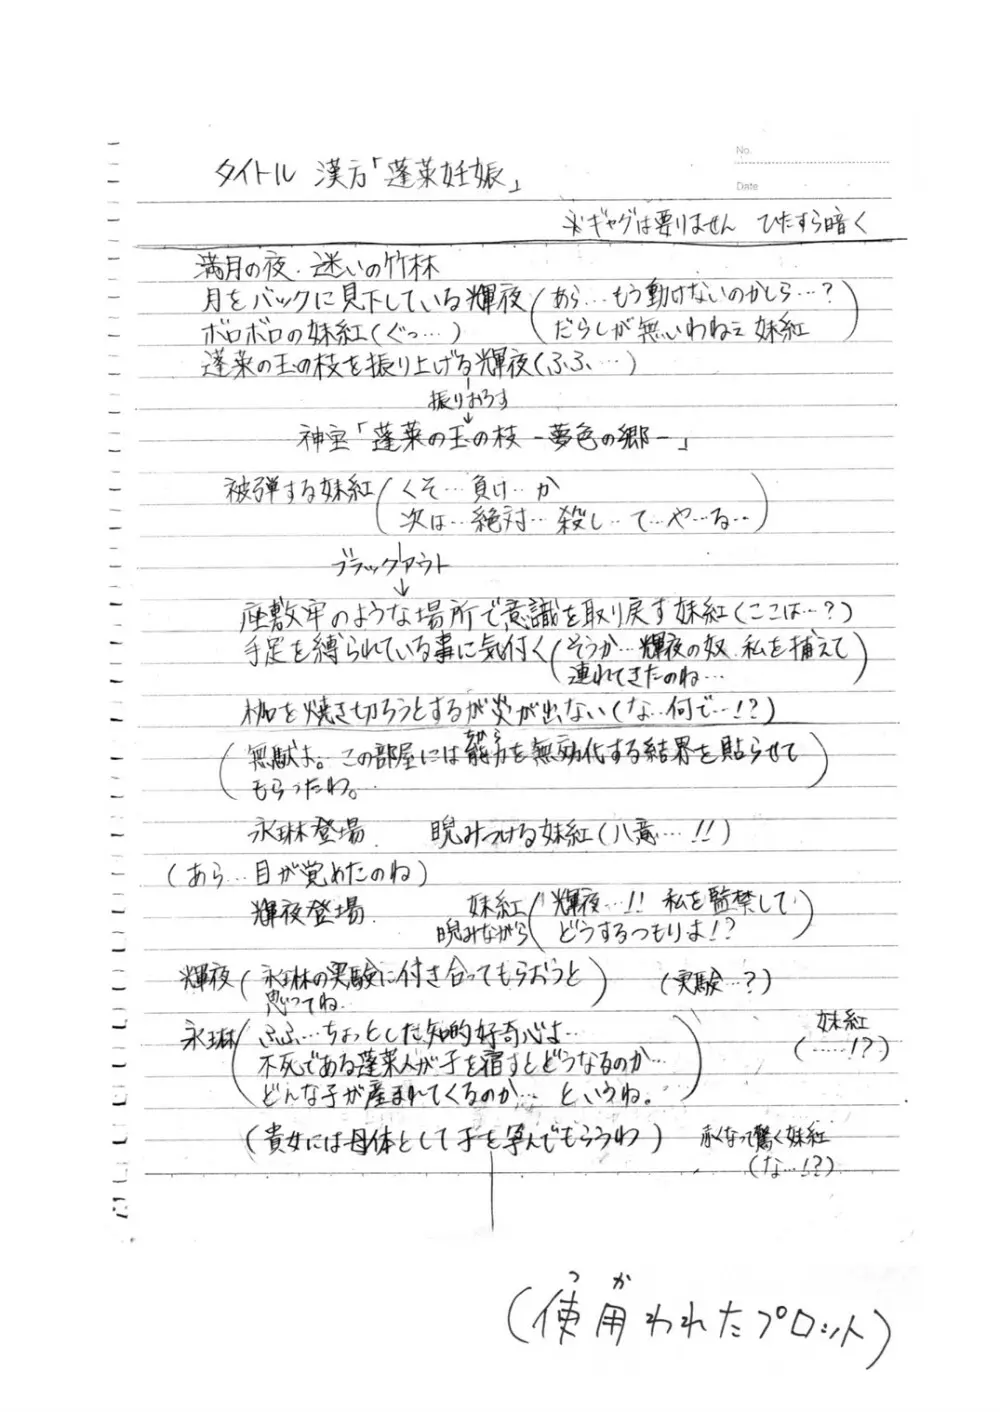 No.
Date
タイトル 漢方「蓬莱妊娠」
※ギャグは要りません ひたすら暗く
満月の夜、迷いの竹林
月をバックに見下している輝夜(あら…もう動けないのかしら…?
だらしが無いわねェ妹紅)
ボロボロの妹紅(ぐっ…)
蓬莱の玉の枝を振り上げる輝夜(ふふ…)
振りおろす
神宝「蓬莱の玉の枝 -夢色の郷-」
被弾する妹紅(くそ…負け…か
次は…絶対…殺し…て…や…る…)
ブラックアウト
座敷牢のような場所で意識を取り戻す妹紅(ここは…?)
手足を縛られている事に気付く(そうか…輝夜の奴、私を捕えて
連れてきたのね…)
枷を焼き切ろうとするが炎が出ない(な…何で…!?)
(無駄よ。この部屋には能力を無効化する結界を貼らせて
もらったわ。)
永琳登場 睨みつける妹紅(八意…!!)
(あら…目が覚めたのね)
輝夜登場 妹紅睨みながら(輝夜…!! 私を監禁して
どうするつもりよ!?)
輝夜(永琳の実験に付き合ってもらおうと
思ってね) (実験…?)
永琳(ふふ…ちょっとした知的好奇心よ…
不死である蓬莱人が子を宿すとどうなるのか…
どんな子が産まれてくるのか… というね。)
妹紅
(……!?)
(貴女には母体として子を孕んでもらうわ) 赤くなって驚く妹紅
(な…!?)
つか
(使用われたプロット)